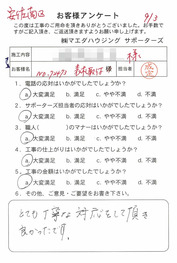 安佐南区
9/3
お客様アンケート
この度は工事のご用命を頂きありがとうございました。お手数で
すがご記入頂き、ご返送頂きますようお願い申し上げます。
㈱マエダハウジング サポーターズ
施工内容
様
お客様名
様
担当者
1. 電話の応対はいかがでしたでしょうか?
a 大変満足 b. 満足 c. やや不満 d. 不満
2. サポーターズ担当者の応対はいかがでしたでしょうか?
a 大変満足 b. 満足 c. やや不満 d. 不満
3. 職人( )のマナーはいかがでしたでしょうか?
a 大変満足 b. 満足 c. やや不満 d. 不満
4. 工事の仕上がりはいかがでしたでしょうか?
a 大変満足 b. 満足 c. やや不満 d. 不満
5. 工事の金額はいかがでしたでしょうか?
a 大変満足 b. 満足 c. やや不満 d. 不満
6. その他、ご意見・ご要望をお書き下さい。
とても丁寧な対応をして頂き
良かったです。